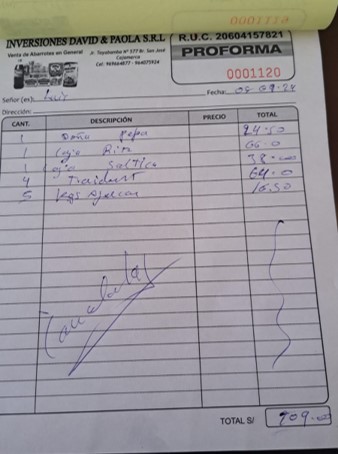 0001119
INVERSIONES DAVID & PAOLA S.R.L
Venta de Abarrotes en General
Jr. Tayabamba N° 577 Br. San José
Cajamarca
R.U.C. 20604157821
PROFORMA
0001120
Señor (es): Luis
Fecha:
Dirección:
CANT. DESCRIPCIÓN PRECIO TOTAL
1 Doña Pepa 24.50
1 Caja Ritz 66.0
1 38.00
4 Trident 64.0
5 kgs 16.50
Cancelado
TOTAL S/ 209.00